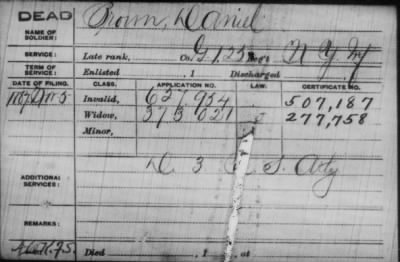 DEAD
NAME OF SOLDIER: Brown, Daniel
SERVICE: Late rank, Co. G, 125 Reg't N Y Inf
TERM OF SERVICE: Enlisted , 1 Discharged
DATE OF FILING. CLASS. APPLICATION NO. LAW. CERTIFICATE NO.
Invalid, 507,187
Widow, 277,758
Minor,
ADDITIONAL SERVICES: 3 U. S. Arty
REMARKS:
Died , 1 , at